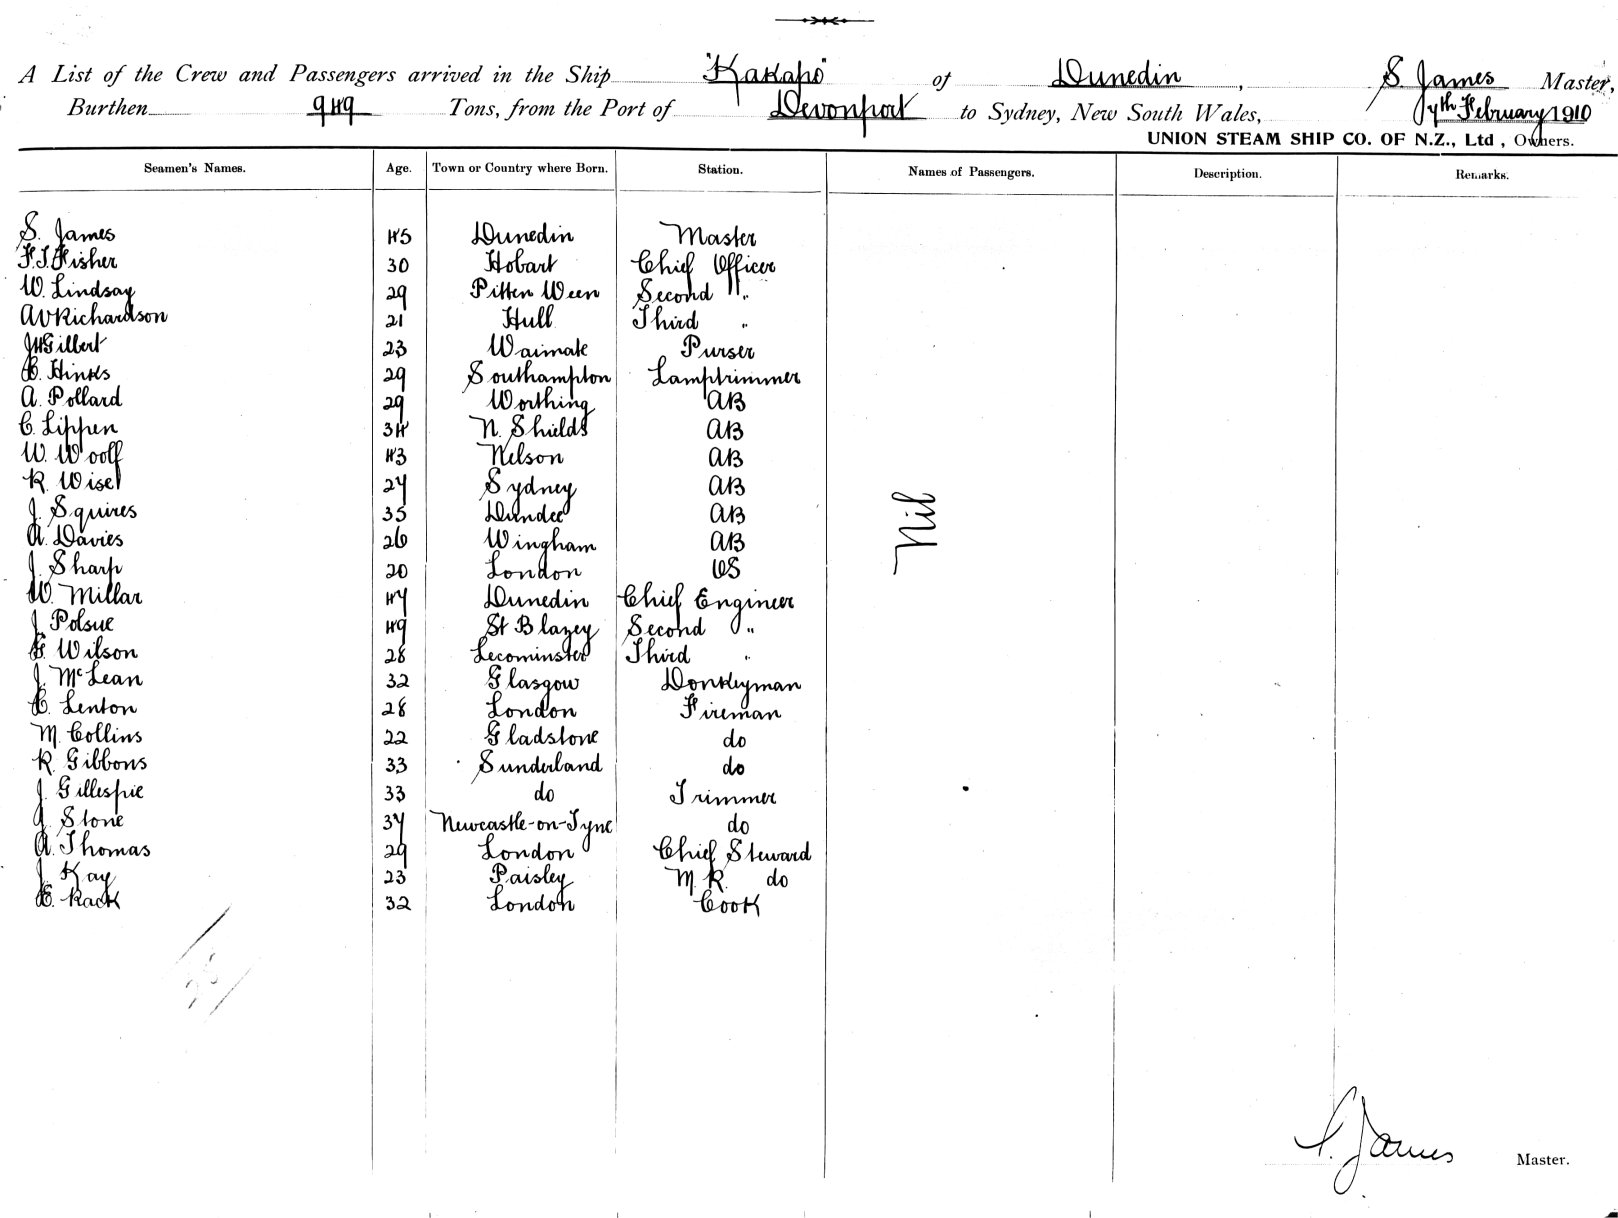 A List of the Crew and Passengers arrived in the Ship "Kakapo" of Dunedin, S James Master,
Burthen 949 Tons, from the Port of Devonport to Sydney, New South Wales, 7th February 1910
UNION STEAM SHIP CO. OF N.Z., Ltd, Owners.
Seamen's Names. Age. Town or Country where Born. Station. Names of Passengers. Description. Remarks.
S. James 45 Dunedin Master
F.J. Fisher 30 Hobart Chief Officer
W. Lindsay 29 Pitten Ween Second "
A V Richardson 21 Hull Third "
J H Gilbert 23 Waimate Purser
E. Hinks 29 Southampton Lamptrimmer
A. Pollard 29 Worthing AB
C. Lippen 34 N. Shields AB
W. Woolf 43 Nelson AB
R. Wise 27 Sydney AB
J. Squires 35 Dundee AB
A. Davies 26 Wingham AB
J. Sharp 20 London OS
W. Millar 47 Dunedin Chief Engineer
J. Polsue 49 St Blazey Second "
G. Wilson 28 Lecominster Third "
J. McLean 32 Glasgow Donkeyman
E. Lenton 28 London Fireman
M. Collins 22 Gladstone do
R. Gibbons 33 Sunderland do
J. Gillespie 33 do Trimmer
J. Stone 37 Newcastle-on-Tyne do
A. Thomas 29 London Chief Steward
J. Kay 23 Paisley M.R. do
E. Rack 32 London Cook
Nil
S. James Master.